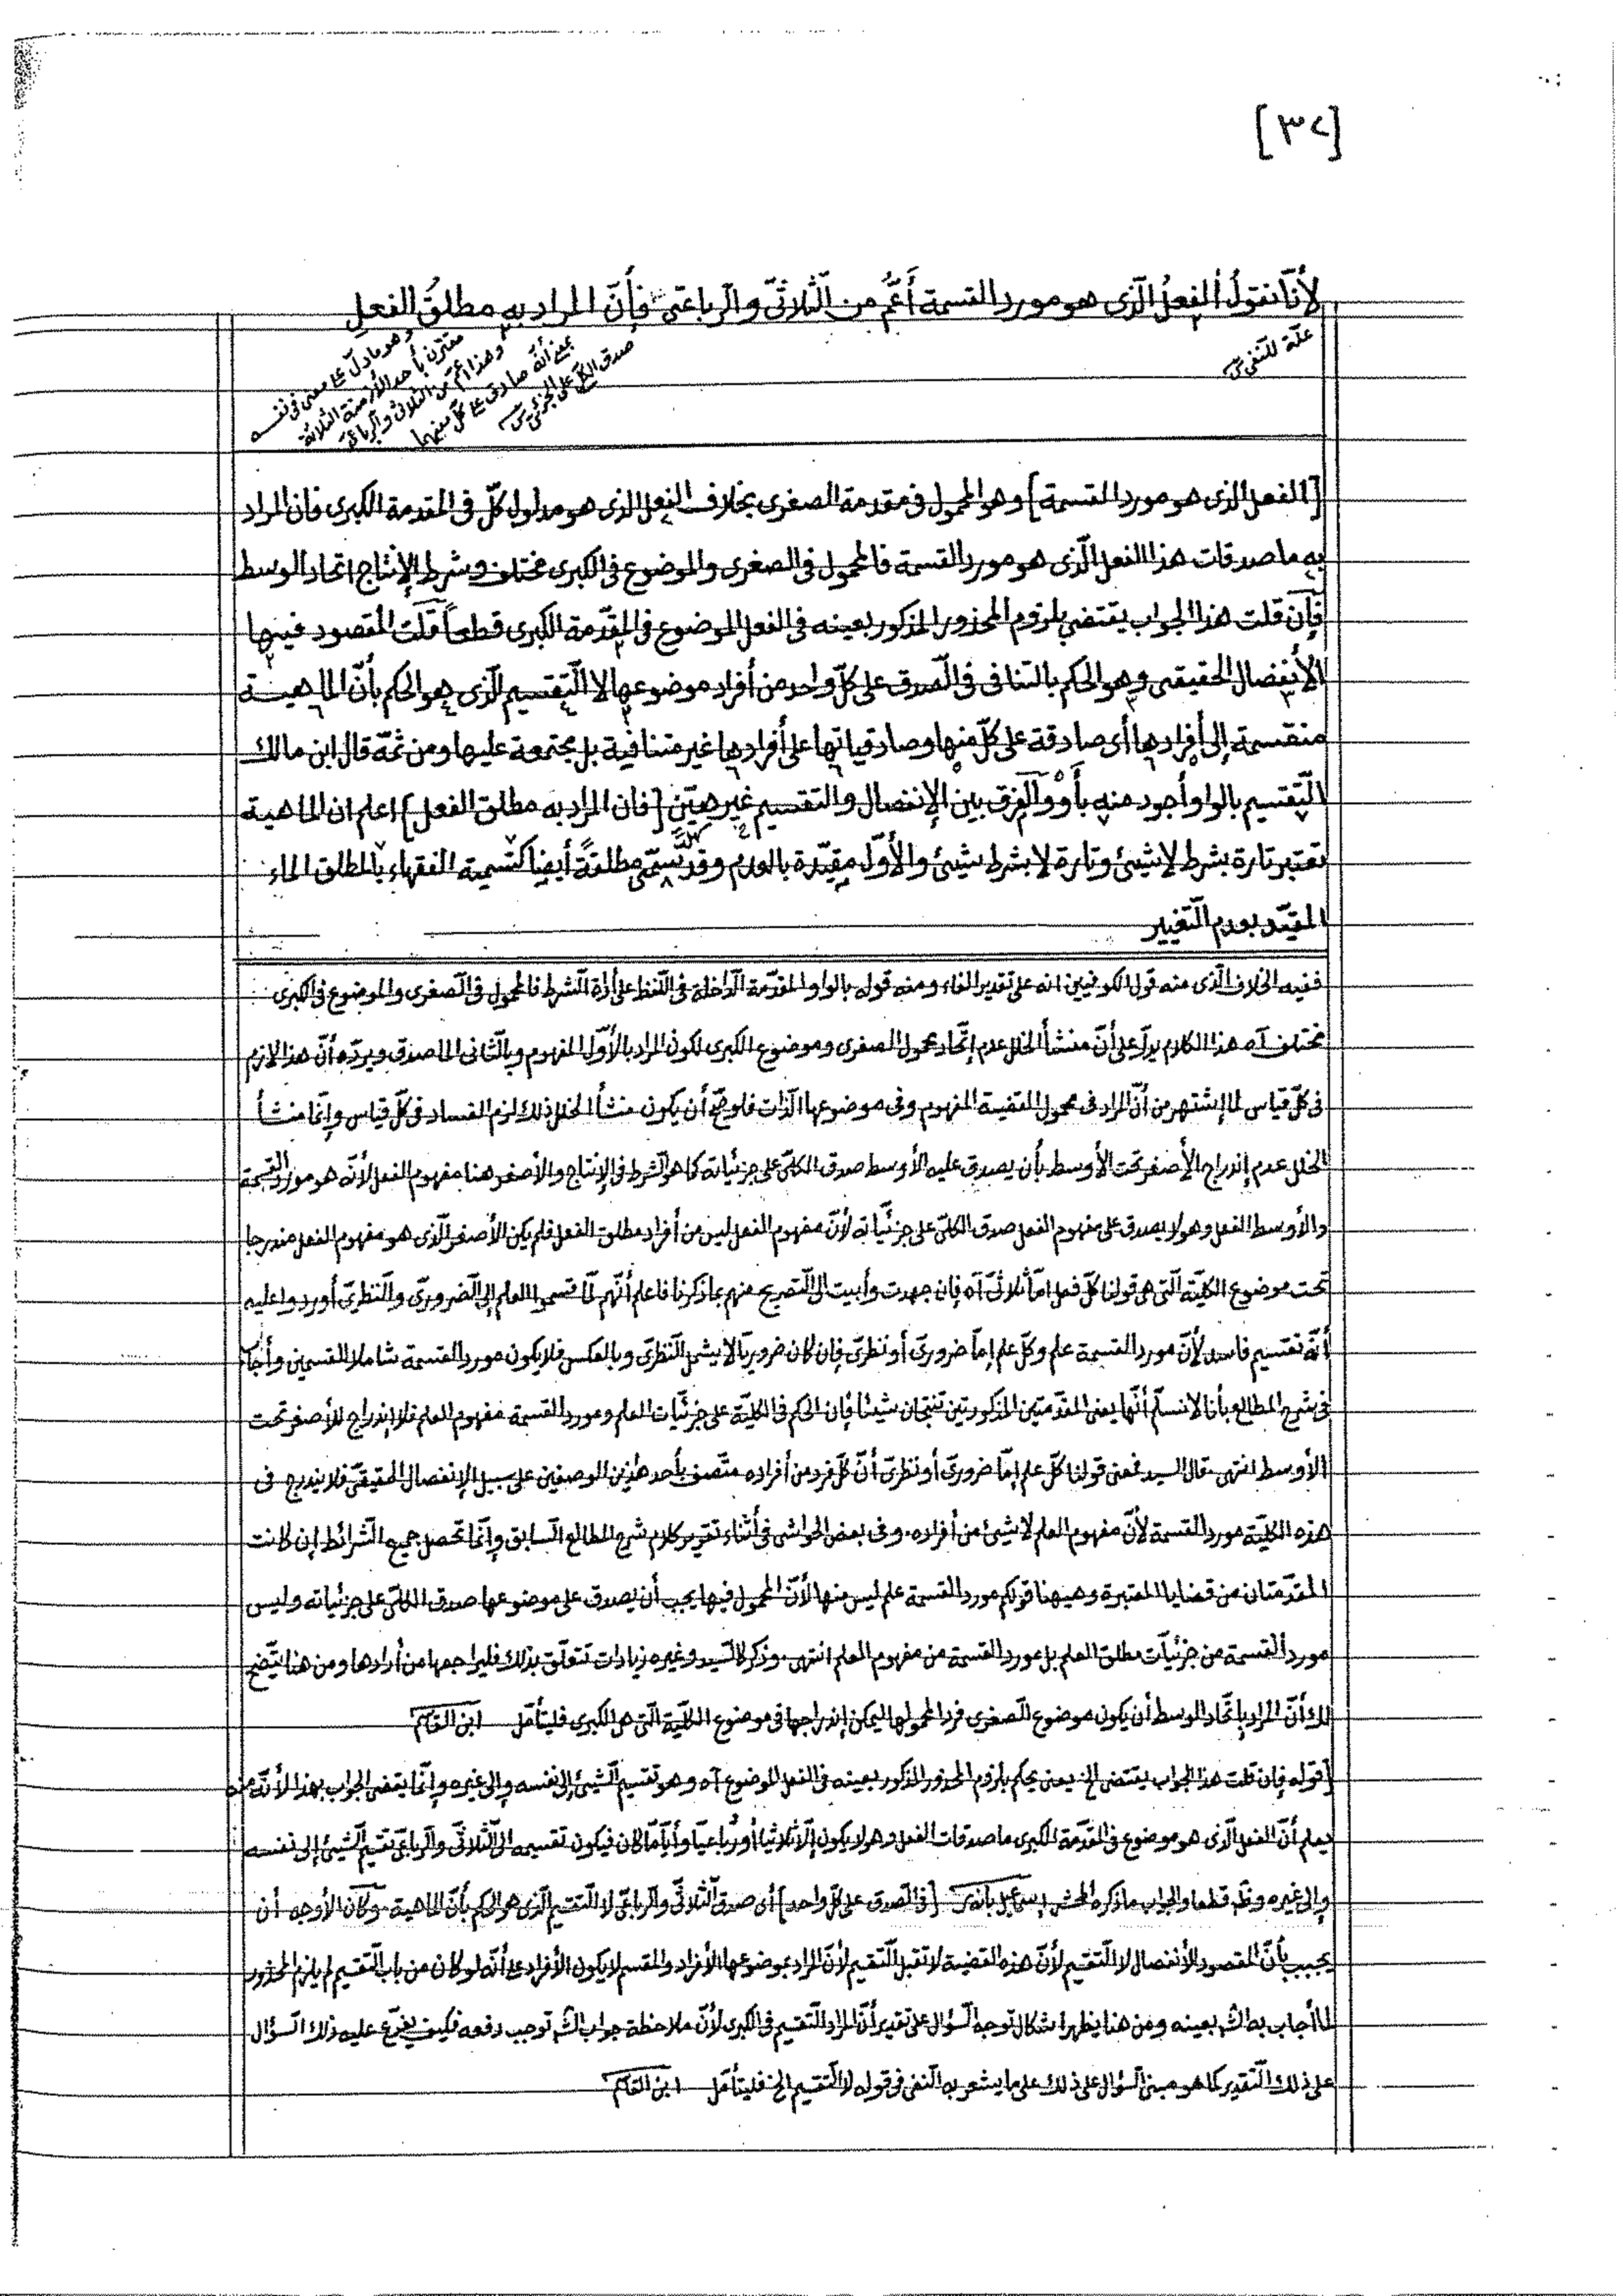 [٣٢]
لأنّا نقولُ الفعلُ الّذى هو مورد القسمة أعَمُّ من الثّلاثىّ والرّباعىّ فإنّ المراد به مطلقُ الفعلِ
علّة للنّفى
وهو ما دلّ على معنى فى نفسه
مقترن بأحد الأزمنة الثلاثة
وهذا أعمّ من الثلاثى والرباعىّ
بمعنى أنّه صادق على كلّ منهما
صدق الكلّى على الجزئى
[الفعل الذى هو مورد القسمة] وهو المحمول فى مقدمة الصغرى بخلاف الفعل الذى هو مدلول كلّ فى المقدمة الكبرى فان المراد
به ما صدقات هذا الفعل الّذى هو مورد القسمة فالمحمول فى الصغرى والموضوع فى الكبرى مختلف وشرط الإنتاج اتحاد الوسط
فإن قلت هذا الجواب يقتضى بلزوم المحذور المذكور بعينه فى الفعل الموضوع فى المقدّمة الكبرى قطعاً قلت المقصود فيها
الأنفصال الحقيقى وهو الحكم بالتنافى فى الصّدق على كلّ واحد من أفراد موضوعها لا التّقسيم الّذى هو الحكم بأنّ الماهية
منقسمة إلى أفرادها أى صادقة على كلّ منها وصادقياتها على أفرادها غير متنافية بل مجتمعة عليها ومن ثمّة قال ابن مالك
التّقسيم بالواو أجود منه بأو والفرق بين الإنفصال والتقسيم غير هيّن [فان المراد به مطلق الفعل] اعلم ان الماهية
تعتبر تارة بشرط لا شيئ وتارة لا بشرط شيئ والأوّل مقيّدة بالعدم وقد تسمّى مطلقةً أيضا كتسمية الفقهاء بالمطلق الماء
المقيّد بعدم التّغيير
ففيه الخلاف الّذى منه قول الكوفيين انه على تقدير الفاء ومنه قوله بالواو المقدّمة الدّاخلة فى اللّفظ على أداة الشّرط فالمحمول فى الصّغرى والموضوع فى الكبرى
مختلف آه هذا الكلام يدلّ على أنّ منشأ الخلل عدم إتّحاد محمول الصغرى وموضوع الكبرى لكون المراد بالأوّل المفهوم وبالثّانى الماصدق ويردّه أنّ هذا لازم
فى كلّ قياس لما إشتهر من أنّ المراد فى محمول القضية المفهوم وفى موضوعها الذّات فلو صحّ أن يكون منشأ الخلل ذلك لزم الفساد فى كلّ قياس وإنّما منشأ
الخلل عدم إندراج الأصغر تحت الأوسط بأن يصدق عليه الأوسط صدق الكلىّ على جزئياته كما هو الشّرط فى الإنتاج والأصغر هنا مفهوم الفعل لأنّه هو مورد القسمة
والأوسط الفعل وهو لا يصدق على مفهوم الفعل صدق الكلىّ على جزئيّاته لأنّ مفهوم الفعل ليس من أفراد مطلق الفعل فلم يكن الأصغر الّذى هو مفهوم الفعل مندرجا
تحت موضوع الكليّة الّتى هى قولنا كلّ فعل امّا ثلاثىّ آه فإن جهدت وأبيت الى التّصريح منهم بما ذكرنا فاعلم أنّهم لمّا قسموا العلم إلى الضّرورىّ والنّظرىّ أوردوا عليه
أنّه تقسيم فاسد لأنّ مورد القسمة علم وكلّ علم إمّا ضرورى أو نظرىّ فإن كان ضروريّا لا يشمل النّظرى وبالعكس فلا يكون مورد القسمة شاملا للقسمين وأجاب
فى شرح المطالع بأنا لا نسلّم أنّها يعنى المقدّمتين المذكورتين تنتجان شيئا فإن الحكم فى الكليّة على جزئيّات العلم ومورد القسمة مفهوم العلم فلا إندراج للأصغر تحت
الأوسط انتهى. قال السيد فمعنى قولنا كلّ علم إمّا ضرورىّ أو نظرىّ أنّ كلّ فرد من أفراده متّصف بأحد هذين الوصفين على سبيل الإنفصال الحقيقىّ فلا يندرج فى
هذه الكليّة مورد القسمة لأنّ مفهوم العلم لا شيئ من أفراده. وفى بعض الحواشى فى أثناء تقرير كلام شرح المطالع السّابق وإنّما تحصل جميع الشّرائط إن كانت
المقدّمتان من قضايا المعتبرة وهيهنا قولكم مورد القسمة علم ليس منها لأنّ المحمول فيها يجب أن يصدق على موضوعها صدق الكلىّ على جزئياته وليس
مورد القسمة من جزئيّات مطلق العلم بل مورد القسمة من مفهوم العلم انتهى وذكر السّيد وغيره زيادات تتعلّق بذلك فليراجعها من أرادها ومن هنا يتّضح
لك أنّ المراد بإتّحاد الوسط أن يكون موضوع الصّغرى فردا لمحمولها ليمكن إندراجها فى موضوع الكليّة الّتى هى الكبرى فليتأمّل ابن القاسم
[قوله فإن قلت هذا الجواب يقتضى الخ يعنى يحكم بلزوم المحذور المذكور بعينه فى الفعل الموضوع آه وهو تقسيم الشّيئ إلى نفسه وإلى غيره وإنّما يقتضى الجواب بهذا لأنّه منه
يعلم أنّ الفعل الّذى هو موضوع فى المقدّمة الكبرى ماصدقات الفعل وهو لا يكون إلّا ثلاثيا أو رُباعيّا وأيّا مّا كان فيكون تقسيمه الى الثّلاثىّ والرّباعىّ تقسيم الشّيئ إلى نفسه
وإلى غيره وظهر قطعا والجواب ما ذكره المحشى [فى الصّدق على كلّ واحد] أى صدق الثّلاثىّ والرّباعىّ لا التّقسيم الّذى هو الحكم بأنّ الماهية. وكان الأوجه أن
يجيب بأنّ المقصود الأنفصال لا التّقسيم لأنّ هذه القضية لا تقبل التّقسيم لأنّ المراد بموضوعها الأفراد والمقسم لا يكون الأفراد على أنّه لو كان من باب التّقسيم لم يلزم المحذور
لما أجاب به الشّ بعينه ومن هنا يظهر إشكال توجه السّؤال على تقدير أنّ المراد التّقسيم فى الكبرى لأنّ ملاحظة جواب الشّ توجب دفعه فكيف يفرّع عليه ذلك السّؤال
على ذلك التّقدير كما هو مبنى السّؤال على ذلك على ما يشعر به النّفى فى قوله لا التّقسيم الخ فليتأمّل ابن القاسم